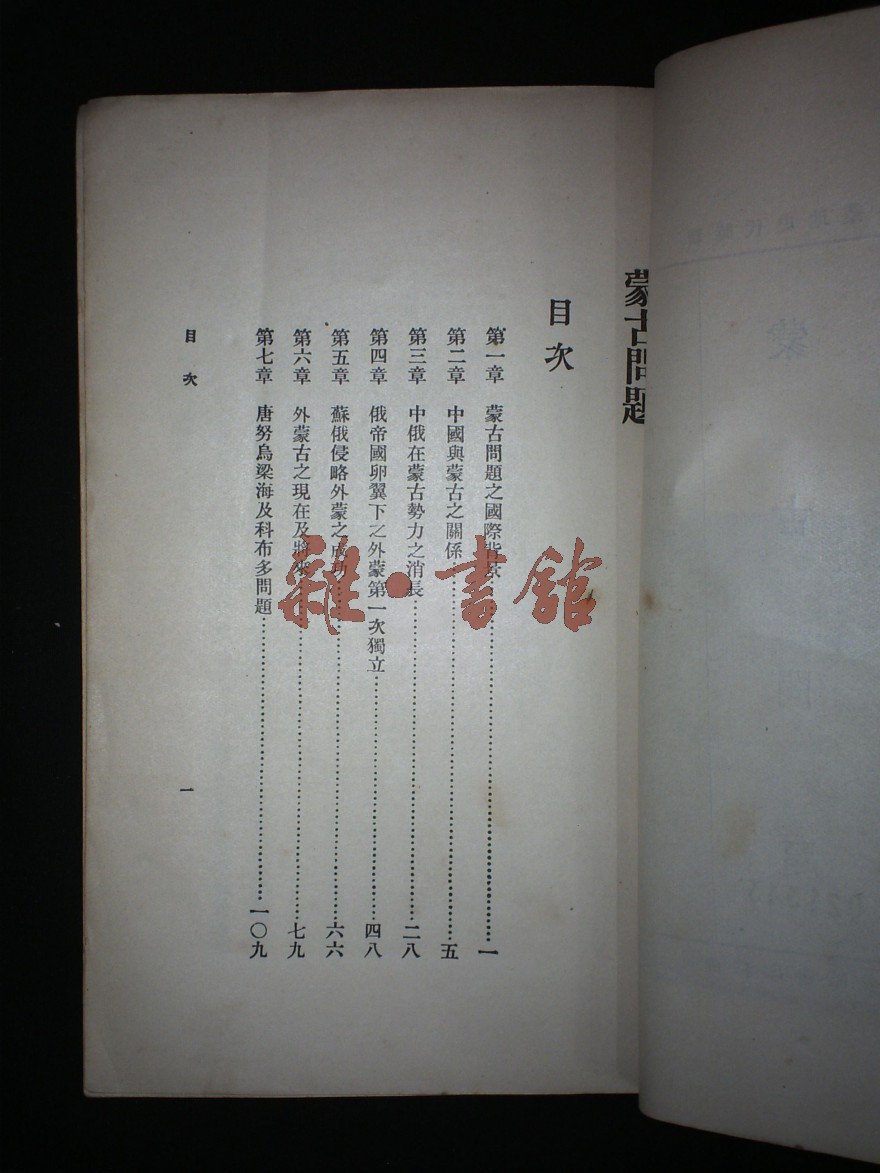 蒙古問題
目次
第一章 蒙古問題之國際背景……一
第二章 中國與蒙古之關係……五
第三章 中俄在蒙古勢力之消長……二八
第四章 俄帝國卵翼下之外蒙第一次獨立……四八
第五章 蘇俄侵略外蒙之成功……六六
第六章 外蒙古之現在及將來……七九
第七章 唐努烏梁海及科布多問題……一〇九
目次
一
雜·書館